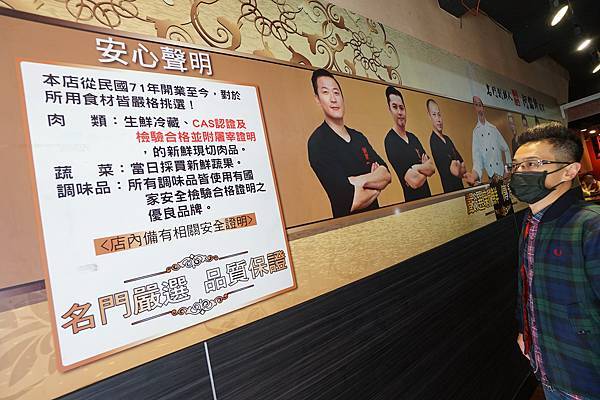 安心聲明
本店從民國71年開業至今，對於
所用食材皆嚴格挑選！
肉　類：生鮮冷藏、CAS認證及
檢驗合格並附屠宰證明
，的新鮮現切肉品。
蔬　菜：當日採買新鮮蔬果。
調味品：所有調味品皆使用有國
家安全檢驗合格證明之
優良品牌。
<店內備有相關安全證明>
名門嚴選 品質保證